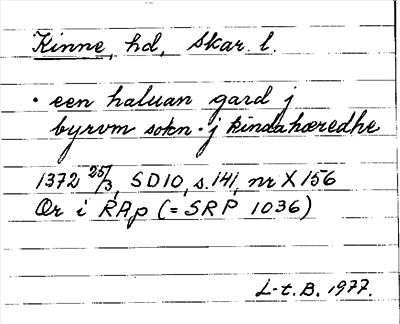 Kinne, hd, Skar. l.
· een haluan gard j
byrvm sokn · j kindahæredhe
1372 25/3, SD10, s. 141, nr X 156
Or i RAp (= SRP 1036)
L-t. B. 1977.